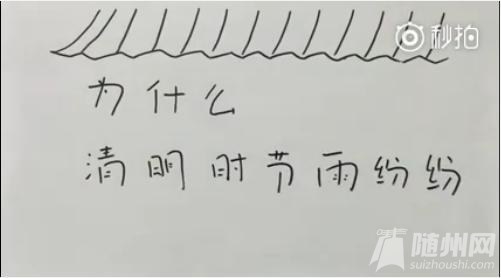 秒拍
为什么
清明时节雨纷纷
随州网
suizhoushi.com